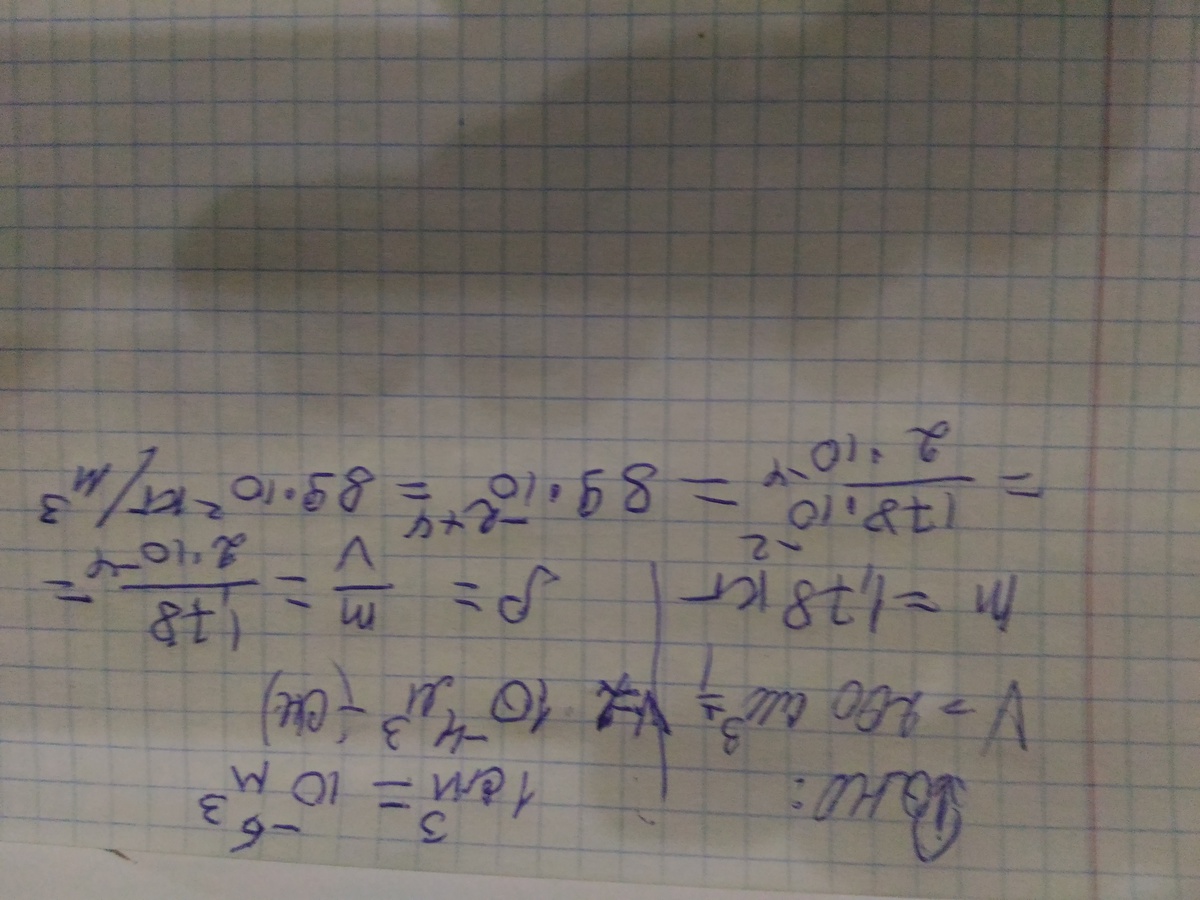 Дано: 1 см³ = 10⁻⁶ м³
V = 200 см³ = 2 · 10⁻⁴ м³ - (си)
m = 1,78 кг ρ = m/V = 1,78/2·10⁻⁴ =
= 178·10⁻²/2·10⁻⁴ = 89·10⁻²⁺⁴ = 89·10² кг/м³